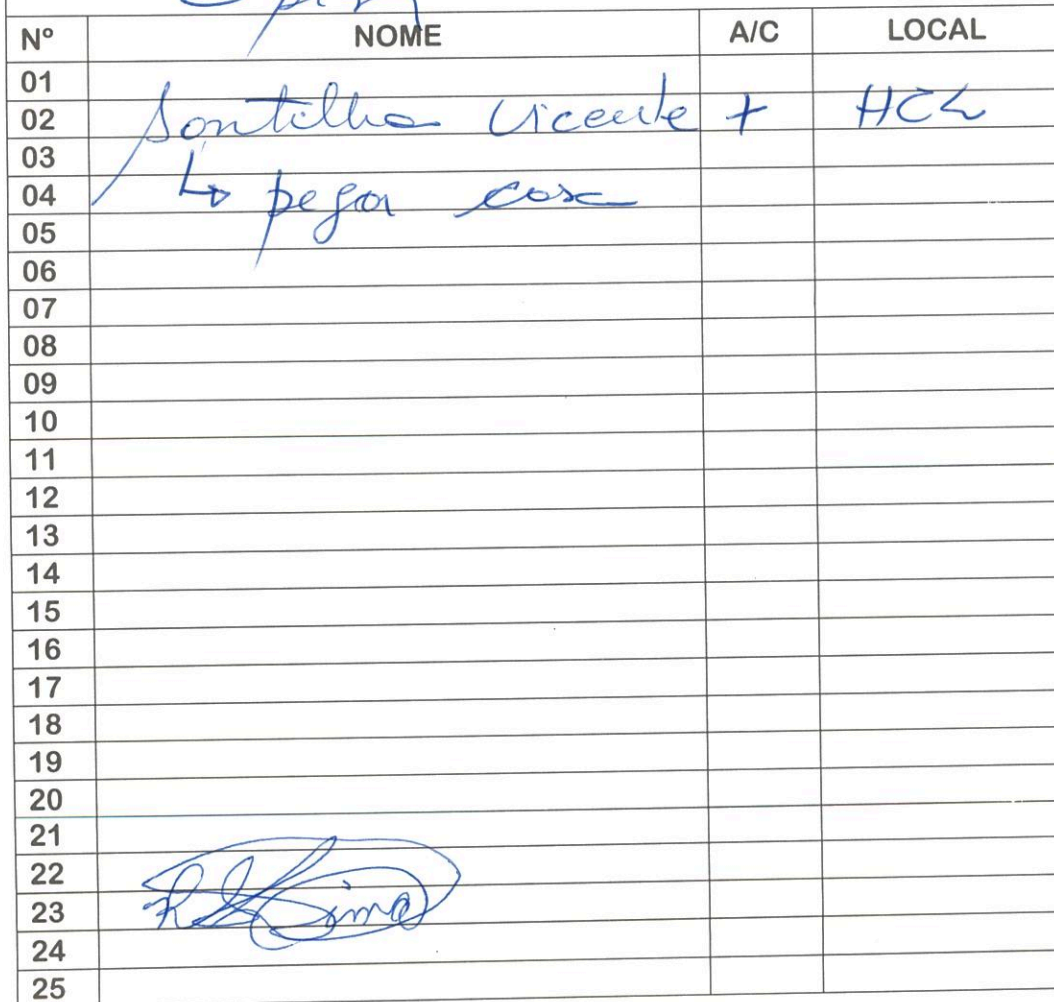 Nº NOME A/C LOCAL
01
02 Santilha Vicente + HCL
03
04 ↳ pegar casa
05
06
07
08
09
10
11
12
13
14
15
16
17
18
19
20
21
22
23
24
25